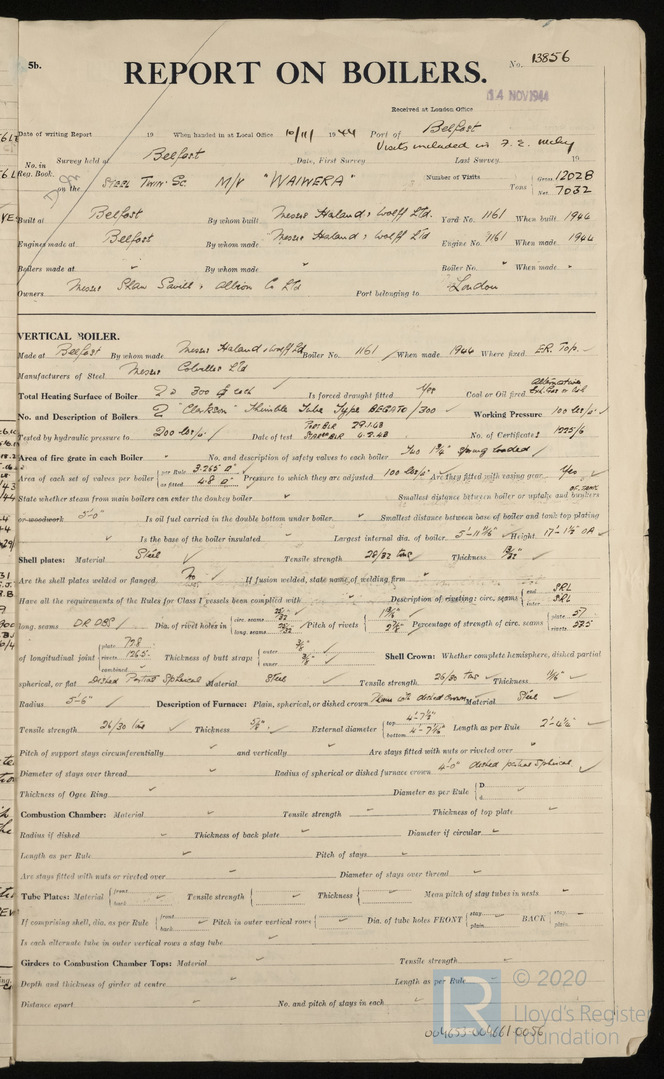 5b.
REPORT ON BOILERS.
No. 13856
Received at London Office
14 NOV 1944
Date of writing Report 19 When handed in at Local Office 10/11/ 1944 Port of Belfast
No. in Reg. Book. Survey held at Belfast Date, First Survey Visits included in F.E. Last Survey 19
on the Steel Twin Sc. M/V "WAIWERA" Number of Visits Tons Gross 12028 Net 7032
Built at Belfast By whom built Messrs Harland & Wolff Ltd. Yard No. 1161 When built 1944
Engines made at Belfast By whom made Messrs Harland & Wolff Ltd Engine No. 1161 When made 1944
Boilers made at " By whom made " Boiler No. " When made "
Owners Messrs Shaw Savill & Albion Co Ltd Port belonging to London
VERTICAL BOILER.
Made at Belfast By whom made Messrs Harland & Wolff Ltd Boiler No. 1161 When made 1944 Where fixed E.R. Top.
Manufacturers of Steel Messrs Colvilles Ltd
Total Heating Surface of Boiler 2 @ 300 each Is forced draught fitted Yes Coal or Oil fired
No. and Description of Boilers 2 "Clarkson" Thimble Tube Type Working Pressure 100 lbs/□"
Tested by hydraulic pressure to 200 lbs/□" Date of test Port Blr 29.1.43 Starbd Blr 4.2.43 No. of Certificate
Area of fire grate in each Boiler No. and description of safety valves to each boiler Two 1¾" Spring Loaded
Area of each set of valves per boiler per Rule 3.265 □" as fitted 4.8 □" Pressure to which they are adjusted 100 lbs/□" Are they fitted with easing gear Yes
State whether steam from main boilers can enter the donkey boiler Smallest distance between boiler or uptake and bunkers
or woodwork 5'-0" Is oil fuel carried in the double bottom under boiler Smallest distance between base of boiler and tank top plating
Is the base of the boiler insulated Largest internal dia. of boiler Height 17'-1½" OA
Shell plates: Material Steel Tensile strength 28/32 tons Thickness
Are the shell plates welded or flanged No If fusion welded, state name of welding firm
Have all the requirements of the Rules for Class I vessels been complied with Description of riveting: circ. seams end SRL inter SRL
long. seams DR DBS Dia. of rivet holes in circ. seams long. seams Pitch of rivets Percentage of strength of circ. seams plate 57 rivets
of longitudinal joint plate rivets combined Thickness of butt straps outer inner Shell Crown: Whether complete hemisphere, dished partial
spherical, or flat Dished Partial Spherical Material Steel Tensile strength 26/30 tons Thickness
Radius 5'-6" Description of Furnace: Plain, spherical, or dished crown Plain with dished crown Material Steel
Tensile strength 26/30 tons Thickness 5/8" External diameter top bottom Length as per Rule
Pitch of support stays circumferentially and vertically Are stays fitted with nuts or riveted over
Diameter of stays over thread Radius of spherical or dished furnace crown 4'-0" dished partial spherical
Thickness of Ogee Ring Diameter as per Rule D d
Combustion Chamber: Material Tensile strength Thickness of top plate
Radius if dished Thickness of back plate Diameter if circular
Length as per Rule Pitch of stays
Are stays fitted with nuts or riveted over Diameter of stays over thread
Tube Plates: Material front back Tensile strength Thickness Mean pitch of stay tubes in nests
If comprising shell, dia. as per Rule front back Pitch in outer vertical rows Dia. of tube holes FRONT stay plain BACK stay plain
Is each alternate tube in outer vertical rows a stay tube
Girders to Combustion Chamber Tops: Material Tensile strength
Depth and thickness of girder at centre Length as per Rule
Distance apart No. and pitch of stays in each
© 2020
Lloyd's Register
Foundation
004653-004661-0056